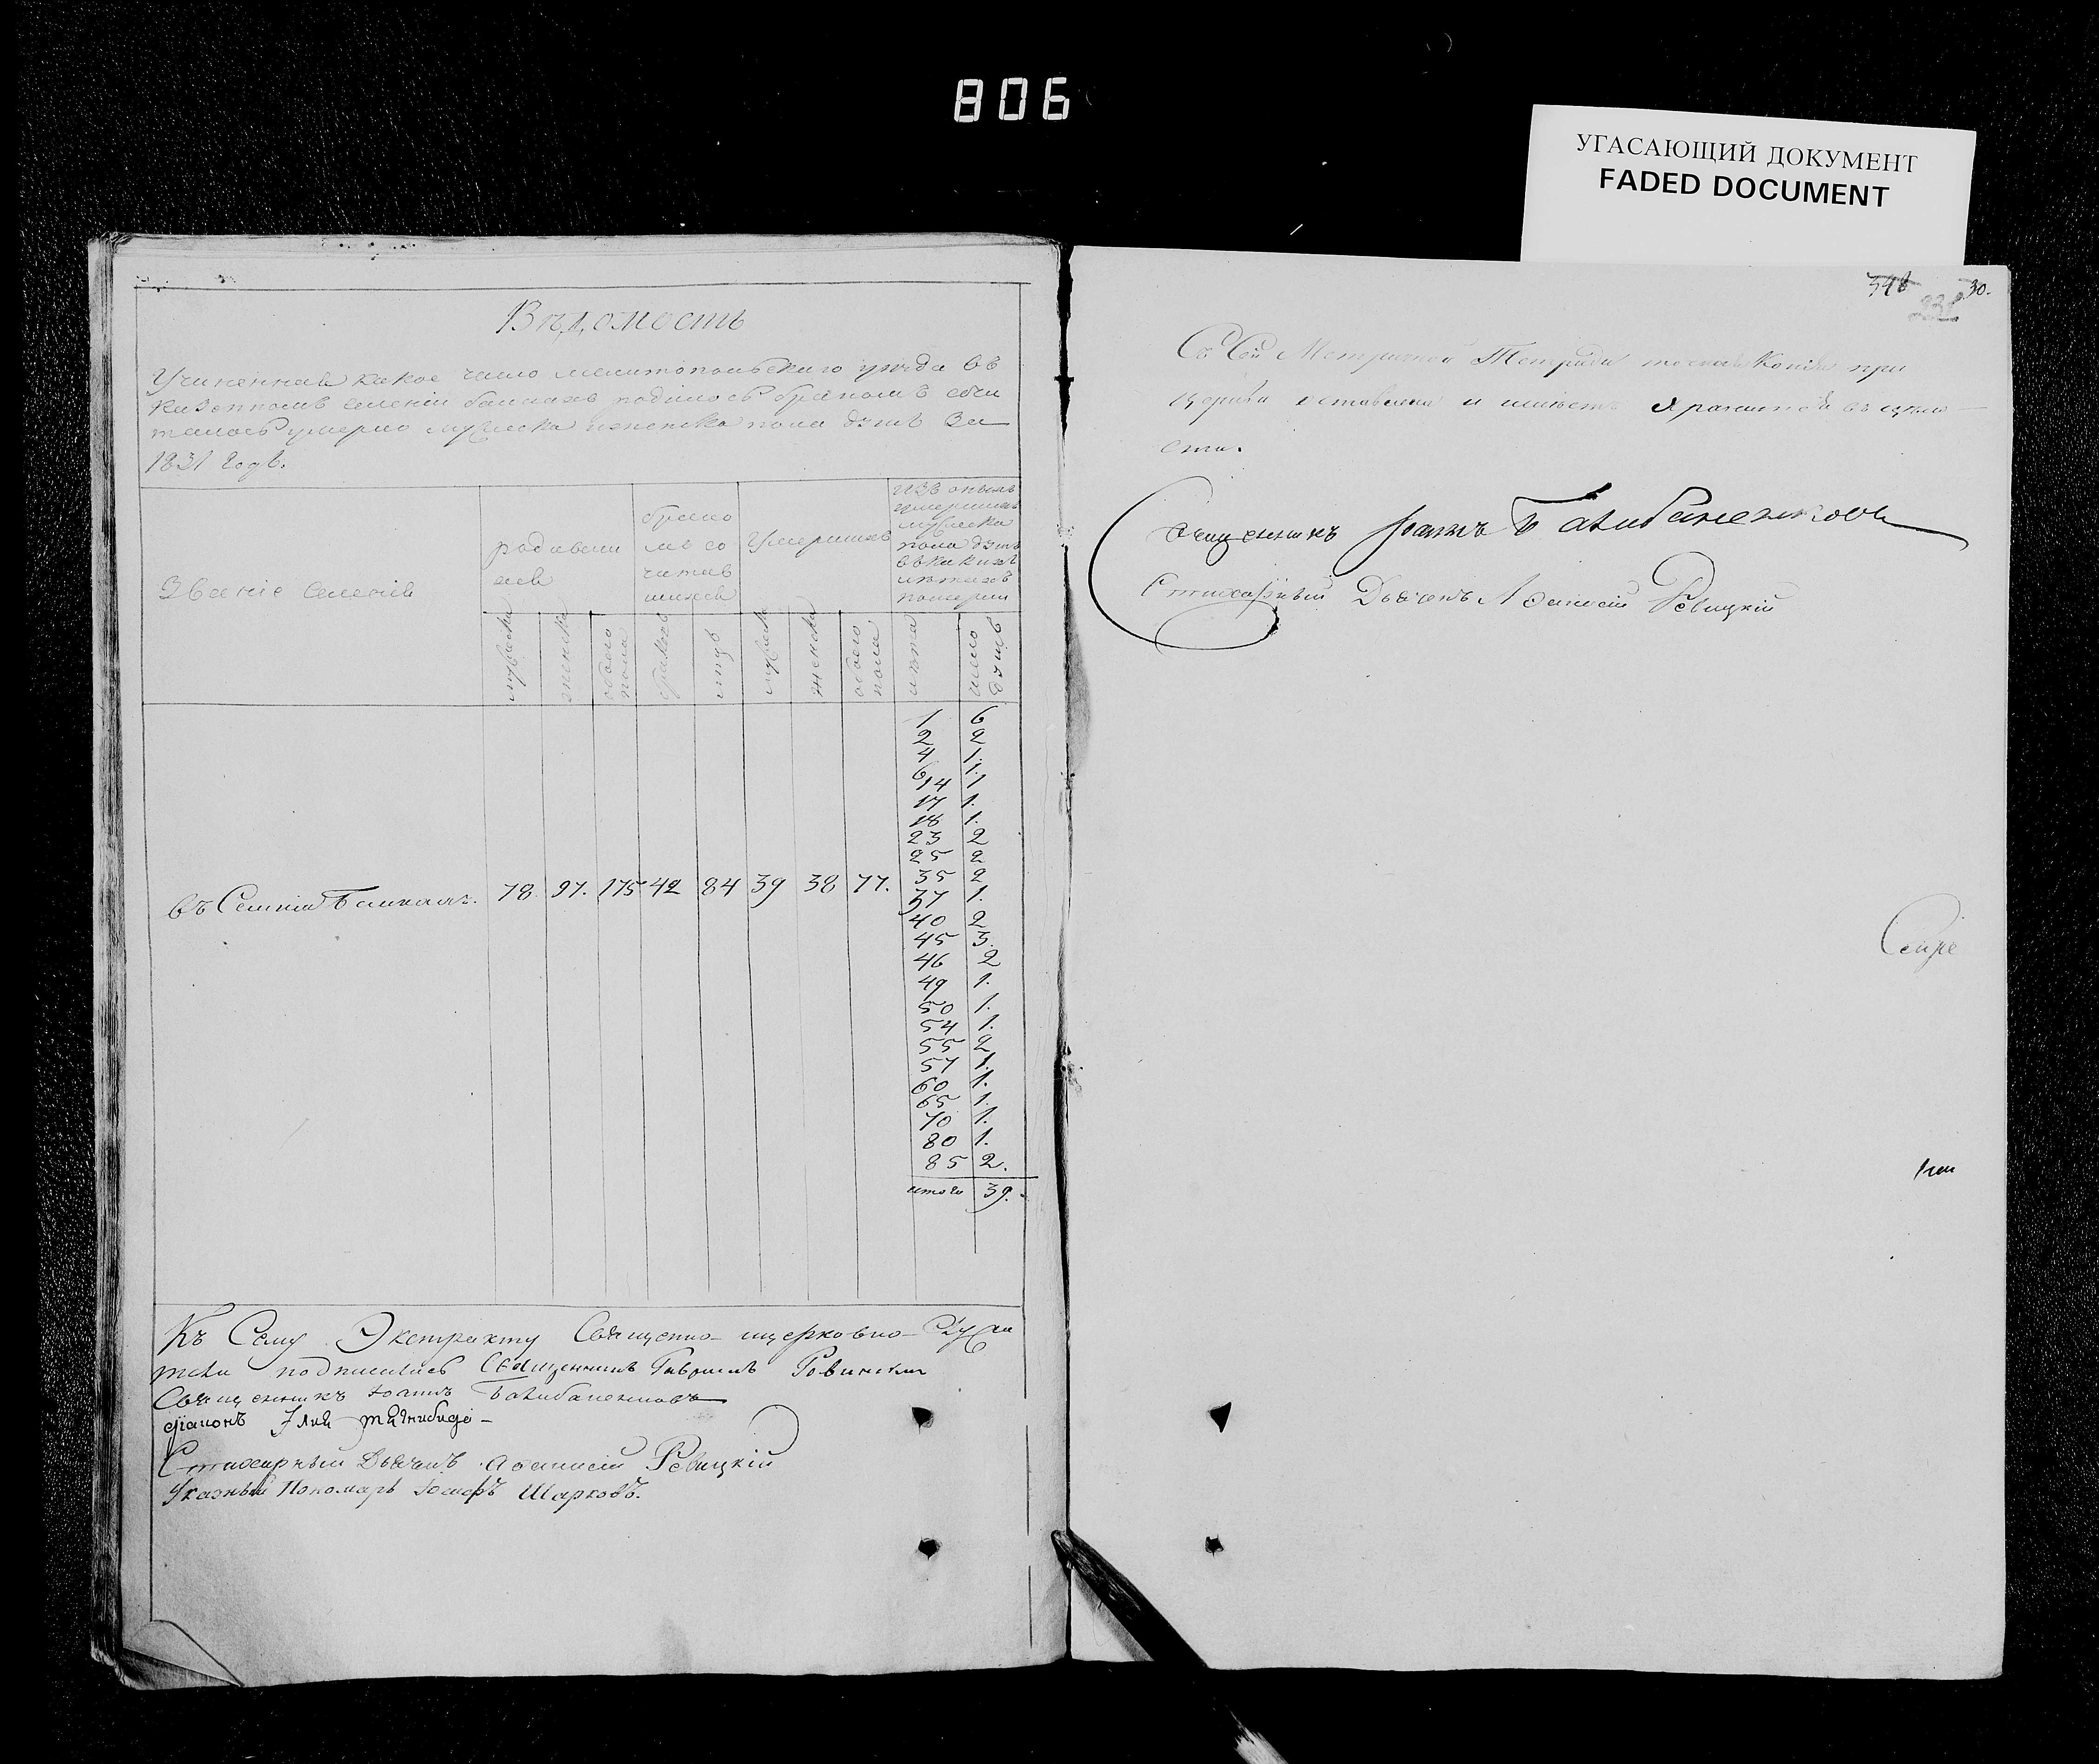 806
УГАСАЮЩИЙ ДОКУМЕНТ
FADED DOCUMENT
Вѣдомость
Учиненная какое число мелитопольского уезда въ
казенномъ селеніи балкахъ родилось бракомъ сочи
талось умерло мужеска женска пола душъ за
1831 годъ.
Званіе селенія
родивши
хся
брако
мъ со
читав
шихся
Умершихъ
изъ оныхъ
умершихъ
мужеска
пола душъ
въ какихъ
летахъ
померли
мужеска
женска
обоего
пола
браковъ
лицъ
мужеска
женска
обоего
пола
лѣта
число
душъ
въ Селеніи Балкахъ. 78. 97. 175 42 84 39 38 77.
1 6
2 2
4 1.
6 1.
14 1
17 1.
18 1.
23 2
25 2
35 2
37 1.
40 2
45 3.
46 2
49 1.
50 1.
54 1.
55 2
57 1.
60 1.
65 1.
70 1.
80 1.
85 2.
итого 39.
Къ Сему Экстракту Священно-церковно-Служи
тели подписались Священникъ Гавриилъ Ровинский
Священникъ Иоаннъ
діаконъ Илия
Стихарный Дьячекъ Афанасій Ревицкій
Указный Пономарь Іосифъ Шарковъ.
30.
Съ Сей Метричной Тетради точная Копія при
церкви оставлена и имѣетъ хранится въ цело
сти.
Священникъ Иоаннъ
Стихарный Дьячекъ Афанасій Ревицкій